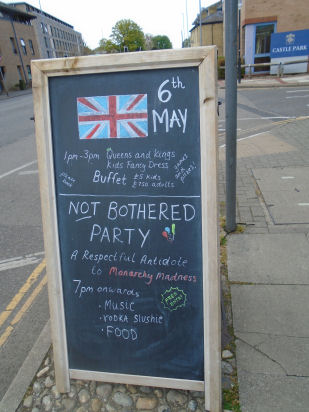 6th
MAY
1pm-3pm Queens and Kings
Kids Fancy Dress
Buffet £5 Kids
£7.50 adults
please book
games and prizes!
NOT BOTHERED
PARTY
A Respectful Antidote
to Monarchy Madness
7pm onwards
FREE ENTRY
• MUSIC
• VODKA Slushie
• FOOD
CASTLE PARK